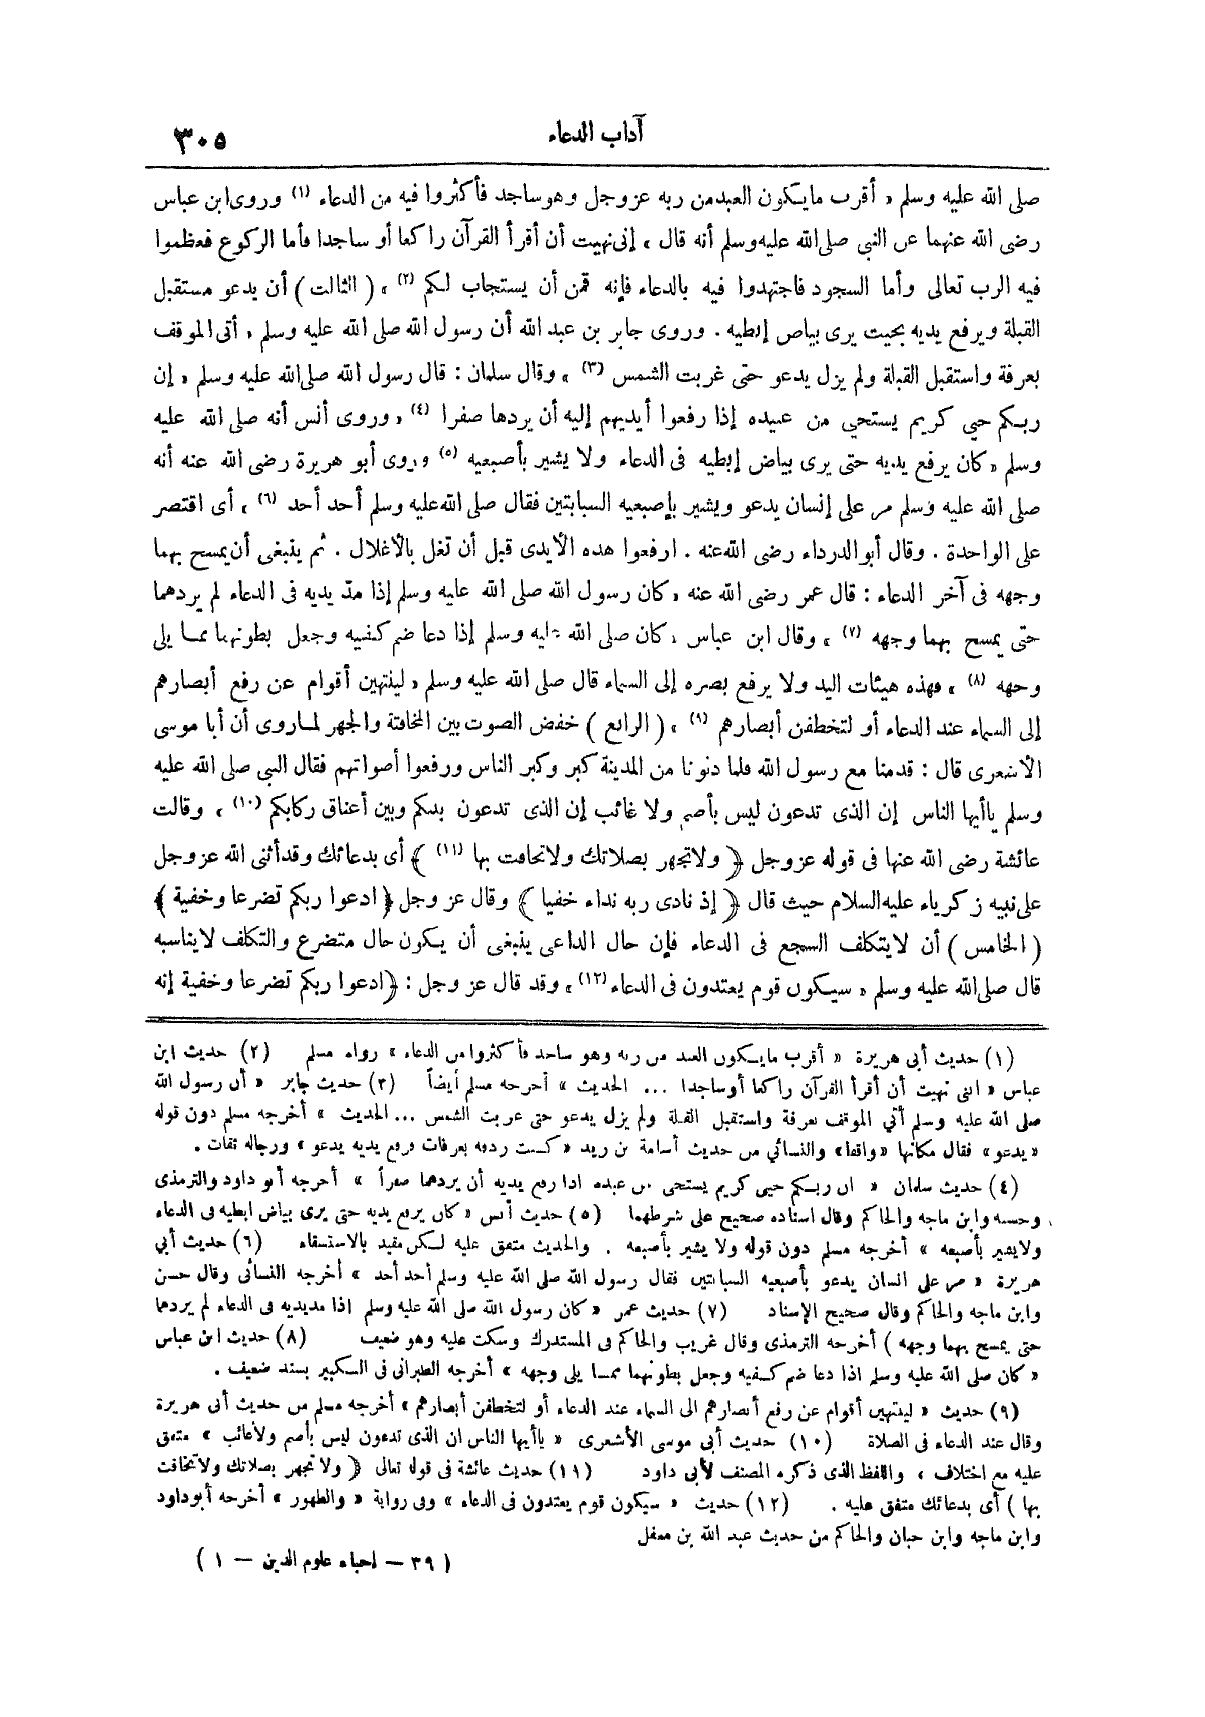 آداب الدعاء
٣٠٥
صلى الله عليه وسلم « أقرب مايكون العبدمن ربه عزوجل وهوساجد فأكثروا فيه من الدعاء (١) وروى ابن عباس
رضى الله عنهما عن النبى صلى الله عليه وسلم أنه قال « إنى نهيت أن أقرأ القرآن راكعا أو ساجدا فأما الركوع فعظموا
فيه الرب تعالى وأما السجود فاجتهدوا فيه بالدعاء فإنه قمن أن يستجاب لكم (٢) » ( الثالث ) أن يدعو مستقبل
القبلة ويرفع يديه بحيث يرى بياض إبطيه . وروى جابر بن عبد الله أن رسول الله صلى الله عليه وسلم « أتى الموقف
بعرفة واستقبل القبلة ولم يزل يدعو حتى غربت الشمس (٣) » وقال سلمان : قال رسول الله صلى الله عليه وسلم « إن
ربكم حي كريم يستحي من عبيده إذا رفعوا أيديهم إليه أن يردها صفرا (٤) » وروى أنس أنه صلى الله عليه
وسلم « كان يرفع يديه حتى يرى بياض إبطيه فى الدعاء ولا يشير بأصبعيه (٥) وروى أبو هريرة رضى الله عنه أنه
صلى الله عليه وسلم مر على إنسان يدعو ويشير بإصبعيه السبابتين فقال صلى الله عليه وسلم أحد أحد (٦) » أى اقتصر
على الواحدة . وقال أبو الدرداء رضى الله عنه . ارفعوا هذه الأيدى قبل أن تغل بالأغلال . ثم ينبغى أن يمسح بهما
وجهه فى آخر الدعاء : قال عمر رضى الله عنه « كان رسول الله صلى الله عليه وسلم إذا مدّ يديه فى الدعاء لم يردهما
حتى يمسح بهما وجهه (٧) » وقال ابن عباس « كان صلى الله عليه وسلم إذا دعا ضم كفيه وجعل بطونهما مما يلى
وجهه (٨) » فهذه هيئات اليد ولا يرفع بصره إلى السماء قال صلى الله عليه وسلم « لينتهين أقوام عن رفع أبصارهم
إلى السماء عند الدعاء أو لتخطفن أبصارهم (٩) » ( الرابع ) خفض الصوت بين المخافتة والجهر لماروى أن أبا موسى
الأشعرى قال : قدمنا مع رسول الله فلما دنونا من المدينة كبر وكبر الناس ورفعوا أصواتهم فقال النبى صلى الله عليه
وسلم ياأيها الناس إن الذى تدعون ليس بأصم ولا غائب إن الذى تدعون بينكم وبين أعناق ركابكم (١٠) » وقالت
عائشة رضى الله عنها فى قوله عزوجل ﴿ ولاتجهر بصلاتك ولاتخافت بها (١١) ﴾ أى بدعائك وقدأثنى الله عزوجل
على نبيه زكرياء عليه السلام حيث قال ﴿ إذ نادى ربه نداء خفيا ﴾ وقال عز وجل ﴿ ادعوا ربكم تضرعا وخفية ﴾
( الخامس ) أن لايتكلف السجع فى الدعاء فإن حال الداعى ينبغى أن يكون حال متضرع والتكلف لايناسبه
قال صلى الله عليه وسلم « سيكون قوم يعتدون فى الدعاء (١٢) » وقد قال عز وجل : ﴿ ادعوا ربكم تضرعا وخفية إنه
(١) حديث أبى هريرة « أقرب مايكون العبد من ربه وهو ساجد فأكثروا من الدعاء » رواه مسلم (٢) حديث ابن
عباس « انى نهيت أن أقرأ القرآن راكعا أوساجدا ... الحديث » أخرجه مسلم أيضاً (٣) حديث جابر « أن رسول الله
صلى الله عليه وسلم أتي الموقف بعرفة واستقبل القبلة ولم يزل يدعو حتى غربت الشمس ... الحديث » أخرجه مسلم دون قوله
«يدعو» فقال مكانها «واقفا» والنسائي من حديث أسامة بن زيد «كنت ردفه بعرفات فرفع يديه يدعو» ورجاله ثقات .
(٤) حديث سلمان « ان ربكم حيى كريم يستحى من عبده اذا رفع يديه أن يردهما صفراً » أخرجه أبو داود والترمذى
وحسنه وابن ماجه والحاكم وقال اسناده صحيح على شرطهما (٥) حديث أنس « كان يرفع يديه حتى يرى بياض ابطيه فى الدعاء
ولايشير بأصبعه » أخرجه مسلم دون قوله ولا يشير بأصبعه . والحديث متفق عليه لكن مقيد بالاستسقاء (٦) حديث أبي
هريرة « مر على انسان يدعو بأصبعيه السبابتين فقال رسول الله صلى الله عليه وسلم أحد أحد » أخرجه النسائى وقال حسن
وابن ماجه والحاكم وقال صحيح الإسناد (٧) حديث عمر « كان رسول الله صلى الله عليه وسلم اذا مديديه فى الدعاء لم يردهما
حتى يمسح بهما وجهه ) أخرجه الترمذى وقال غريب والحاكم فى المستدرك وسكت عليه وهو ضعيف (٨) حديث ابن عباس
« كان صلى الله عليه وسلم اذا دعا ضم كفيه وجعل بطونهما مما يلى وجهه » أخرجه الطبرانى فى الكبير بسند ضعيف .
(٩) حديث « لينتهين أقوام عن رفع أبصارهم الى السماء عند الدعاء أو لتخطفن أبصارهم » أخرجه مسلم من حديث أبى هريرة
وقال عند الدعاء فى الصلاة (١٠) حديث أبى موسى الأشعرى « ياأيها الناس ان الذى تدعون ليس بأصم ولاغائب » متفق
عليه مع اختلاف ، واللفظ الذى ذكره المصنف لأبى داود (١١) حديث عائشة فى قوله تعالى ﴿ ولاتجهر بصلاتك ولاتخافت
بها ) أى بدعائك متفق عليه . (١٢) حديث « سيكون قوم يعتدون فى الدعاء » وفى رواية « والطهور » أخرجه أبوداود
وابن ماجه وابن حبان والحاكم من حديث عبد الله بن مغفل
( ٣٩ — احياء علوم الدين — ١ )